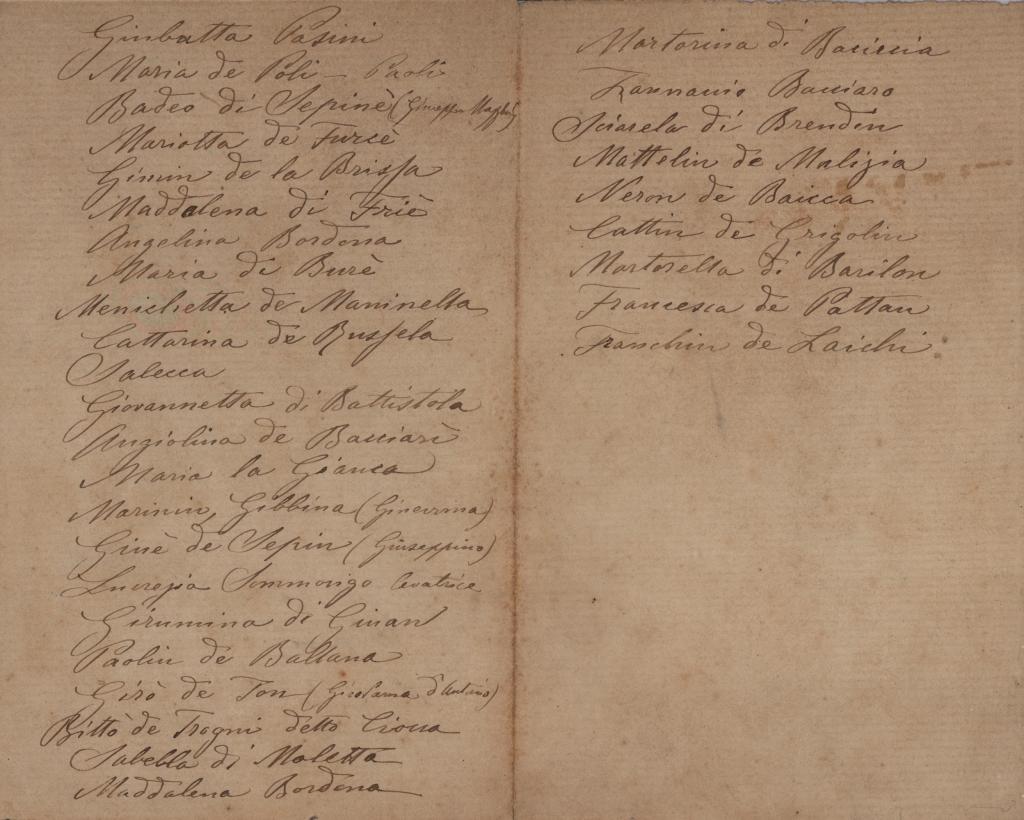 Giubatta Pasini
Maria de Poli - Paoli
Badeo di Sepinè (Giuseppe
Mariotta de Furcè
Gimin de la Brissa
Maddalena di Friè
Angelina Bordona
Maria di Burè
Menichetta de Maninella
Cattarina de Bussela
Salecca
Giovannetta di Battistola
Angiolina de Bacciarè
Maria la Gianca
Marinin, Gibbina (Ginevrina)
Ginè de Sepin (Giuseppino)
Lucrezia Sommovigo levatrice
Girumina di Giuan
Paolin de Ballana
Girò de Ton (Girolama d'Antonio)
Bittò de Trogni detto Ciocca
Sabella di Moletta
Maddalena Bordona
Martorina di Baciccia
Bacciaro
Sciarela di Brendin
Mattelin de Malizia
Neron de Baicca
Cattin de Grigolin
Martorella di Barilon
Francesca de Pattan
Franchin de Laichi